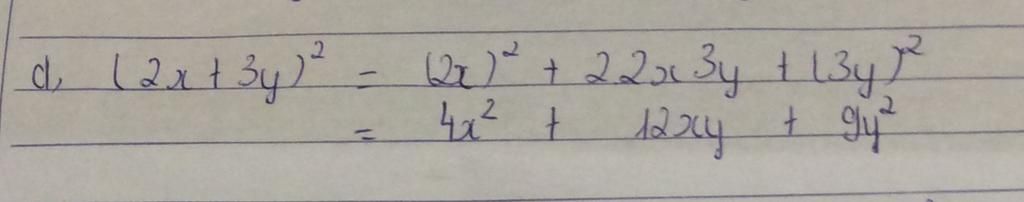 d, (2x + 3y)² = (2x)² + 2 2x 3y + (3y)²
= 4x² + 12xy + 9y²